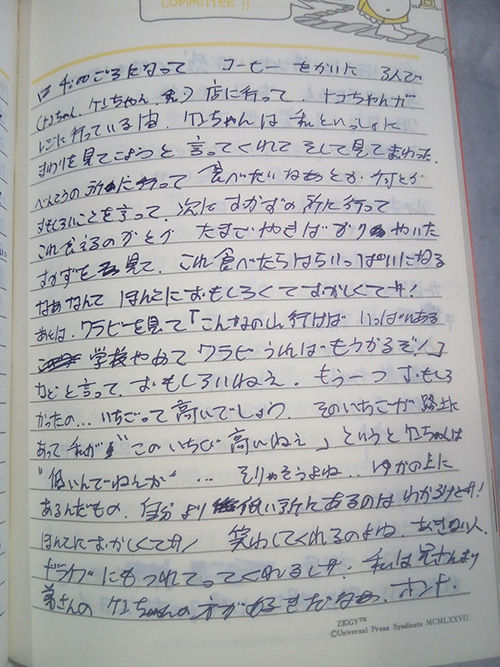 COMMITTEE!!
ロ 私のごろになって コーヒー をかいに 3人で
(トコちゃん、ケエちゃん、私) 店に行って、トコちゃんが
しごに行っている間、ケエちゃんは 私といっしょに
まわりを見てこようと 言ってくれて そして見てまわった。
べんとうの所に行って 食べたいなあとか ケッとか
おもしろいことを言って、次に おかずの所に行って
これ食えるのかとか たまごやきばかり やいた
おかずを見て、これ食べたらはらいっぱいになる
なあなんて ほんとにおもしろくておかしくてサ!
あとは、ワラビーを見て「こんなの山行けば いっぱいある
学校やめて ワラビうれば もうかるぞ!」
などと言って、おもしろいねえ。 もう一つ おもしろ
かったの... いちごって高いでしょう、そのいちごが 路上に
あって 私が "このいちご 高いねえ」というとケエちゃんは
"低いんでねんか" ... そりゃそうよね... ゆかの上に
あるんだもの、自分より低い所にあるのは わかるけどサ!
ほんとにおかしくてサ! 笑わしてくれるのよね、
ドライブにもつれてってくれるしサ、私は兄さんより
弟さんの ケエちゃんの方が好きだなあ、ホント。
ZIGGY™
©Universal Press Syndicate MCMLXXVII